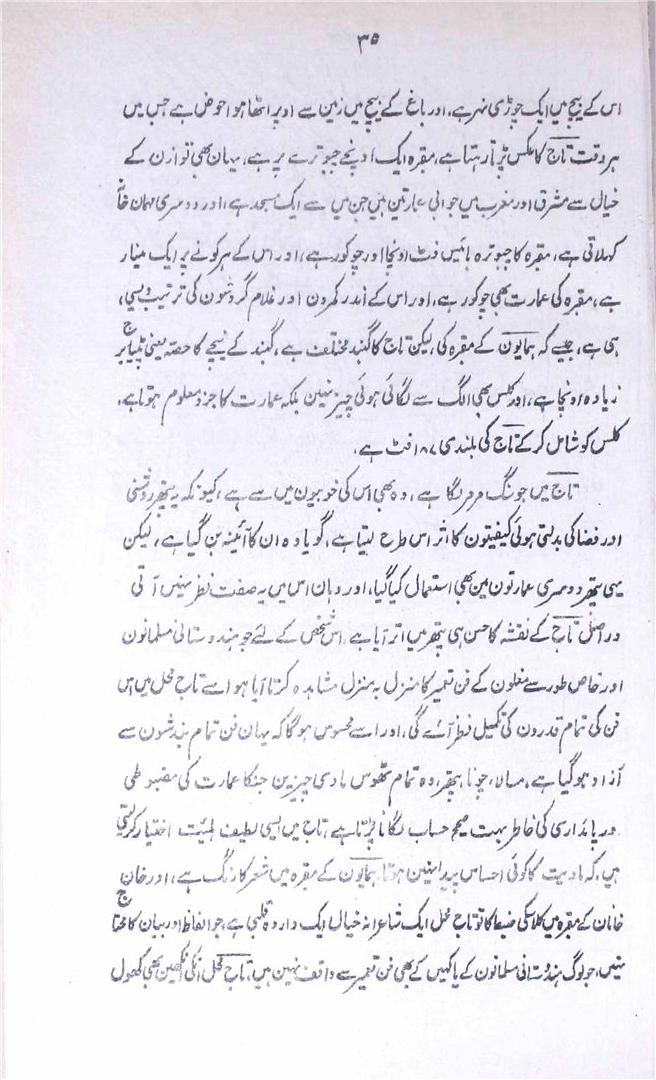 ۳۵
اس کے بیچ میں ایک چوڑی نہر ہے، اور باغ کے بیچ میں زمین سے اوپر اٹھا ہوا حوض ہے جس میں
ہر وقت تاج کا عکس پڑتا رہتا ہے، مقبرہ ایک اونچے چبوترے پر ہے، یہان بھی توازن کے
خیال سے مشرق اور مغرب میں جوابی عمارتین ہیں جن میں سے ایک مسجد ہے، اور دوسری مہمان خانہ
کہلاتی ہے، مقبرہ کا چبوترہ بائیس فٹ اونچا اور چوکور ہے، اور اس کے ہر کونے پر ایک مینار
ہے، مقبرہ کی عمارت بھی چوکور ہے، اور اس کے اندر کمرون اور غلام گردشون کی ترتیب ویسی،
ہی ہے، جیسے کہ ہمایون کے مقبرہ کی، لیکن تاج کا گنبد مختلف ہے، گنبد کے نیچے کا حصہ یعنی
زیادہ اونچا ہے، اور کلس بھی الگ سے لگائی ہوئی چیز نہین بلکہ عمارت کا جزو معلوم ہوتا ہے،
کلس کو شامل کر کے تاج کی بلندی ۱۸۷ فٹ ہے.
تاج میں جو سنگ مرمر لگا ہے، وہ بھی اس کی خوبیون میں سے ہے، کیونکہ یہ پتھر روشنی
اور فضا کی بدلتی ہوئی کیفیتون کا اثر اس طرح لیتا ہے، گویا وہ ان کا آئینہ بن گیا ہے، لیکن
یہی پتھر دوسری عمارتون مین بھی استعمال کیا گیا، اور وہان اس میں یہ صفت نظر نہیں آتی
در اصل تاج کے نقشہ کا حسن ہی پتھر میں اتر آیا ہے اس شخص کے لئے جو ہندوستانی مسلمانون
اور خاص طور سے مغلون کے فن تعمیر کا منزل بہ منزل مشاہدہ کرتا آیا ہو اسے تاج محل میں اس
فن کی تمام قدرون کی تکمیل نظر آئے گی، اور اسے محسوس ہوگا کہ یہان فن تمام بندشون سے
آزاد ہو گیا ہے، مسالا، چونا، پتھر، وہ تمام ٹھوس مادی چیزین جنکا عمارت کی مضبوطی
اور پائداری کی خاطر بہت صحیح حساب لگانا پڑتا ہے، تاج میں ایسی لطیف ہئیت اختیار کر لیتی
ہیں، کہ مادیت کا کوئی احساس پیدا نہین ہوتا، ہمایون کے مقبرہ میں شعر کا رنگ ہے، اور خان
خانان کے مقبرہ میں کلاسکی ضبط کا تو تاج محل ایک شاعرانہ خیال ایک واردہ قلبی ہے جو الفاظ اور بیان کا محتاج
نہیں، جو لوگ ہندوستانی مسلمانون کے یا کہیں کے بھی فن تعمیر سے واقف نہین ہیں، تاج محل انکی آنکھین بھی کھول